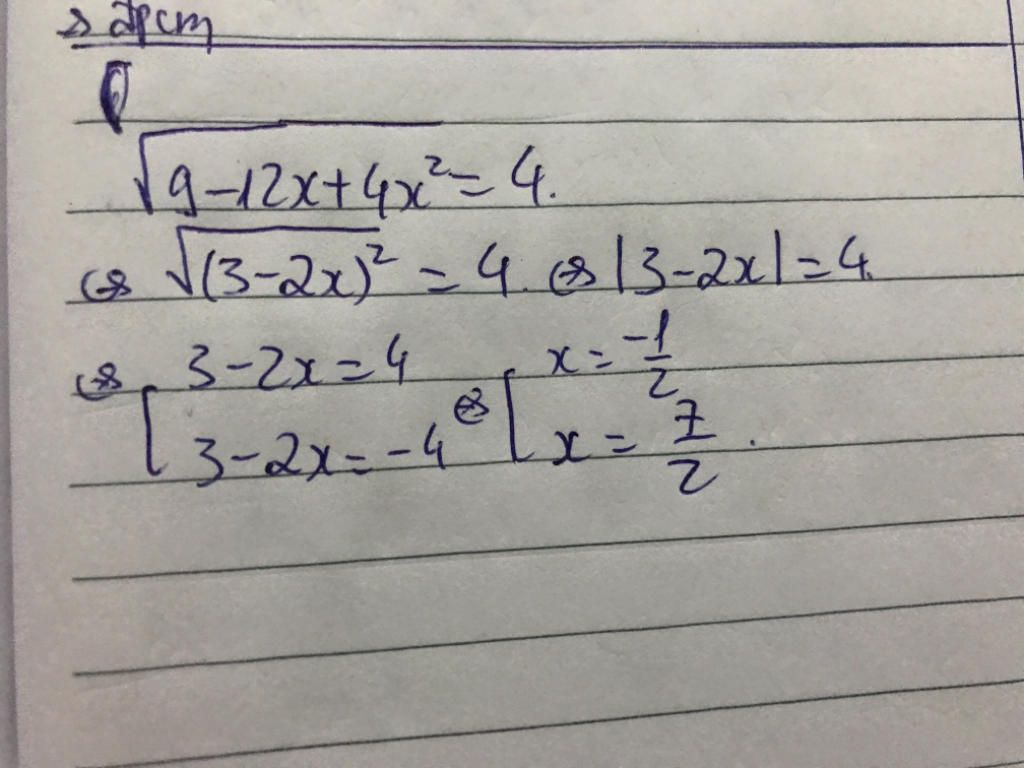 ⇔ đpcm
√(9-12x+4x²) = 4.
⇔ √((3-2x)²) = 4. ⇔ |3-2x| = 4.
⇔ [ 3-2x=4 ⇔ [ x = -1/2
3-2x=-4 x = 7/2.